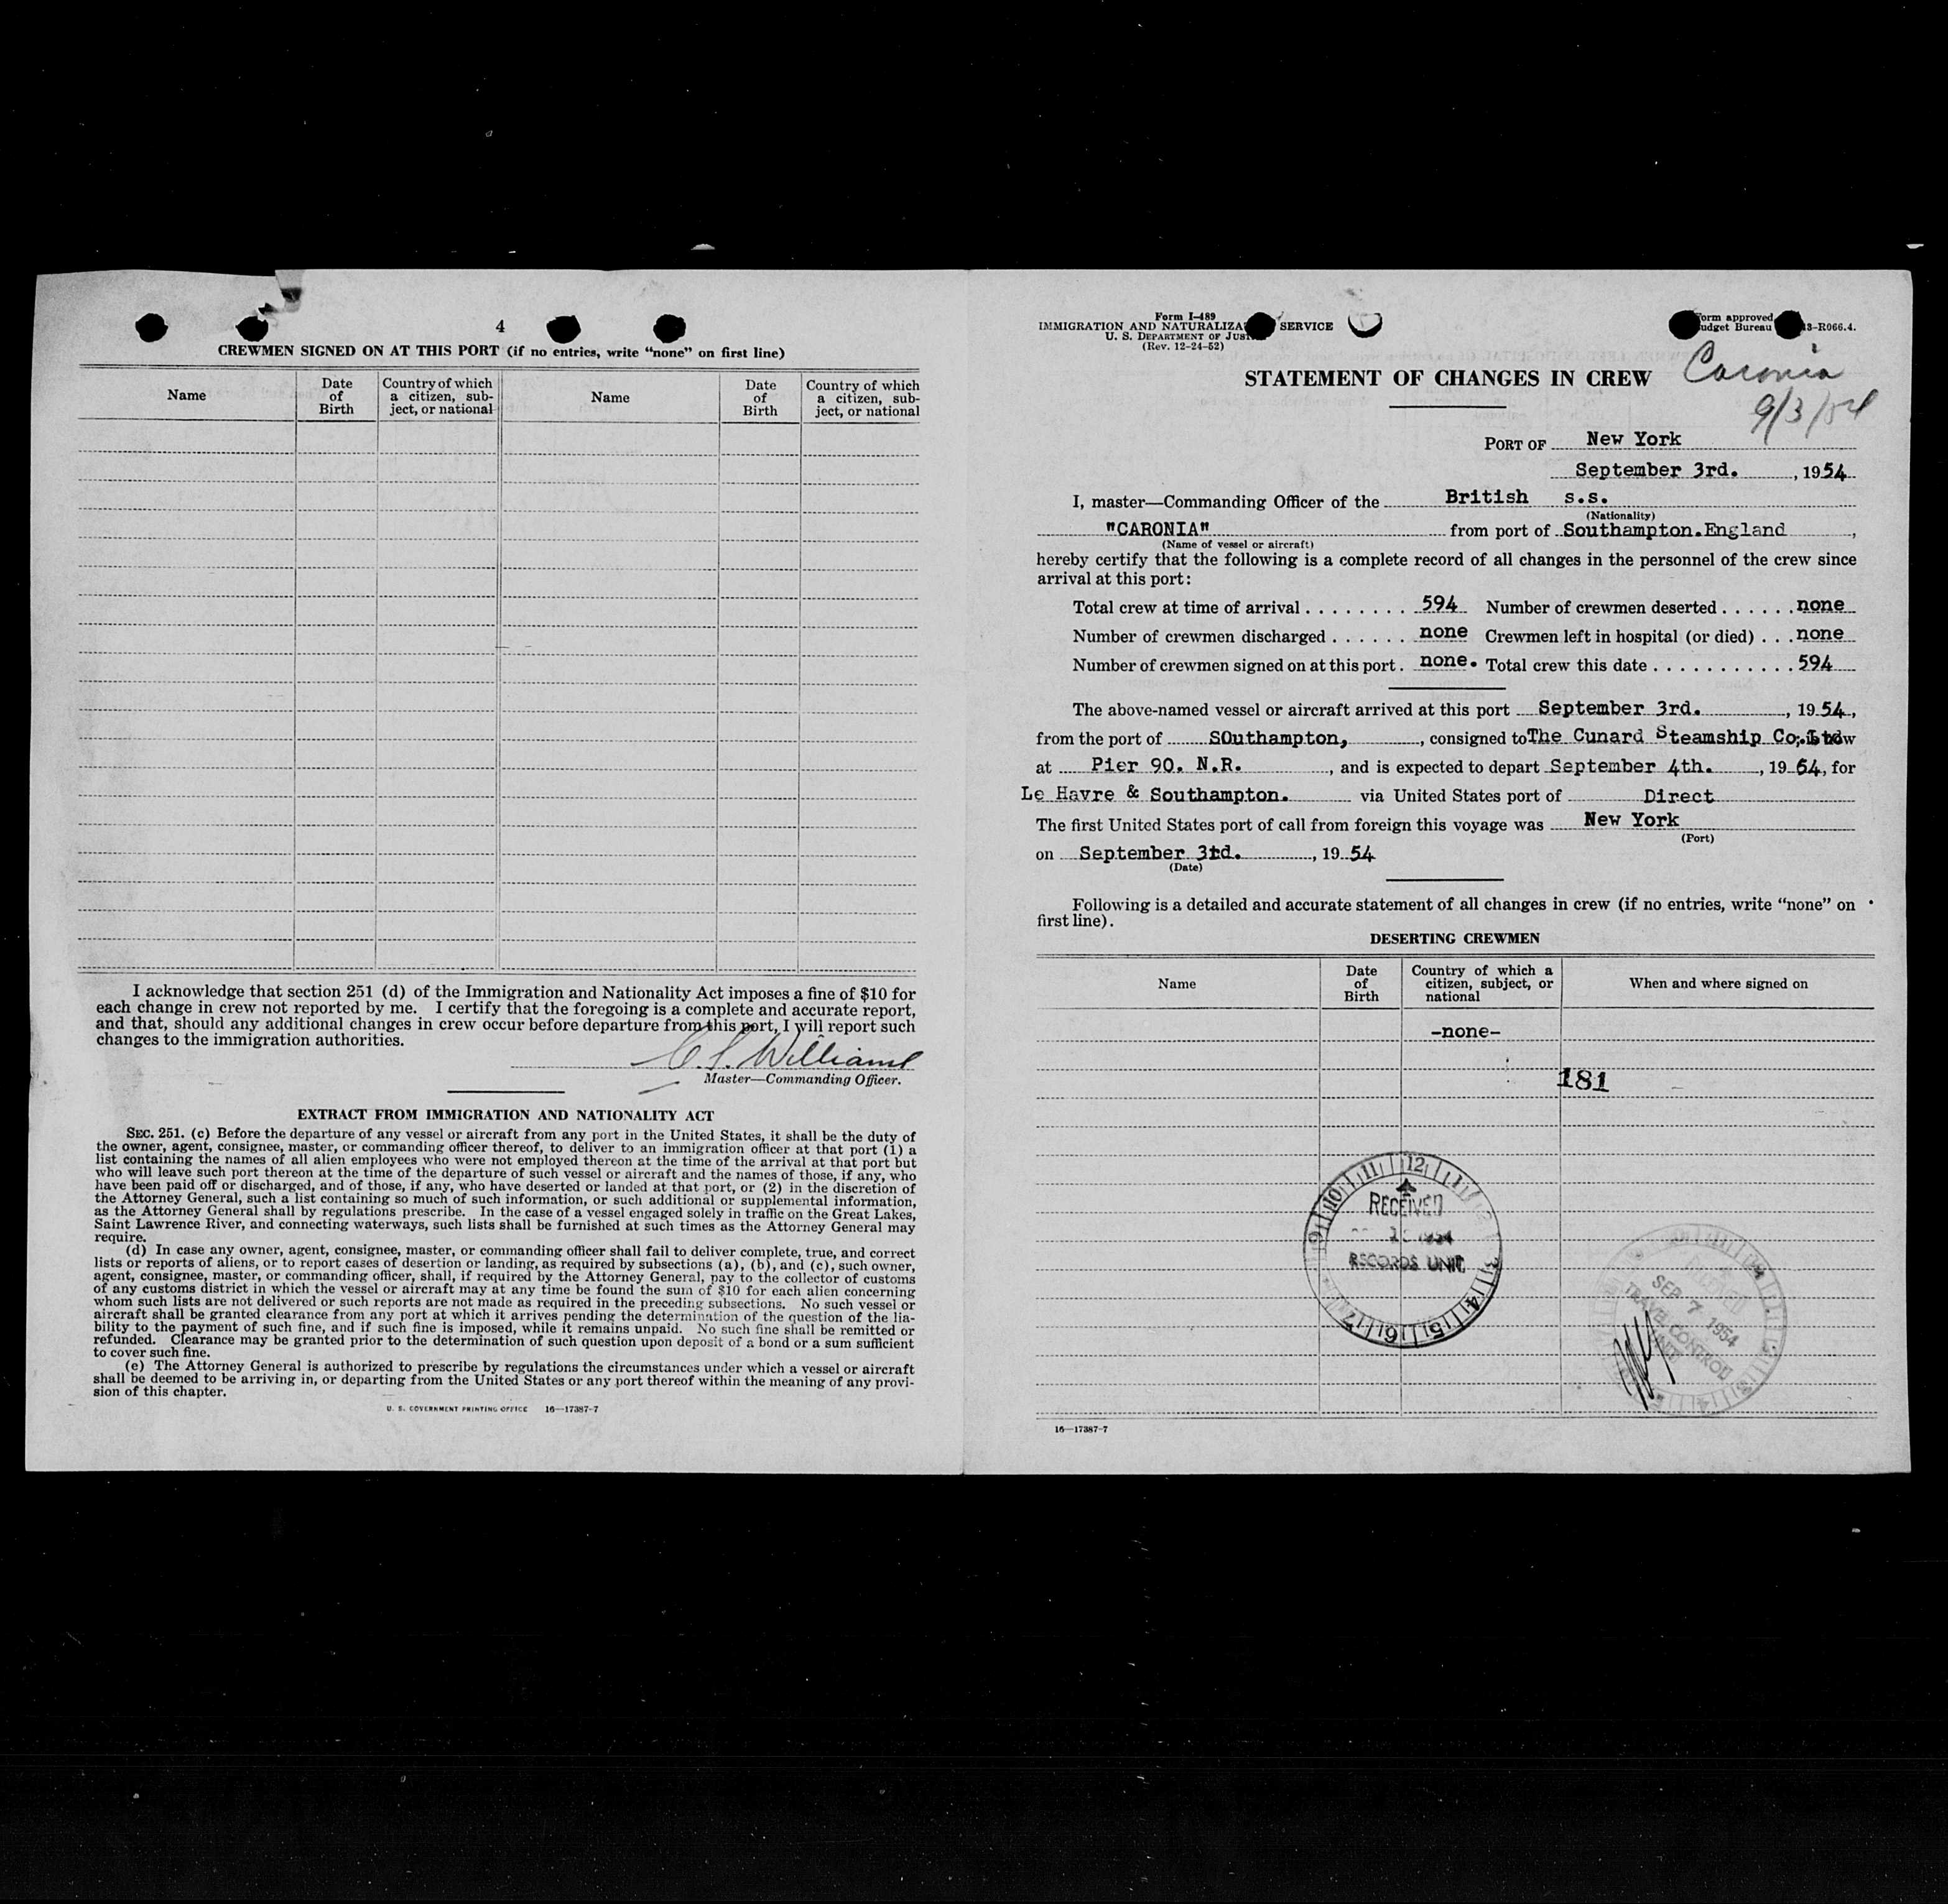 4
CREWMEN SIGNED ON AT THIS PORT (if no entries, write “none” on first line)
Name
Date of Birth
Country of which a citizen, sub-ject, or national
Name
Date of Birth
Country of which a citizen, sub-ject, or national
I acknowledge that section 251 (d) of the Immigration and Nationality Act imposes a fine of $10 for
each change in crew not reported by me. I certify that the foregoing is a complete and accurate report,
and that, should any additional changes in crew occur before departure from this port, I will report such
changes to the immigration authorities.
C. S. Williams
Master—Commanding Officer.
EXTRACT FROM IMMIGRATION AND NATIONALITY ACT
SEC. 251. (c) Before the departure of any vessel or aircraft from any port in the United States, it shall be the duty of
the owner, agent, consignee, master, or commanding officer thereof, to deliver to an immigration officer at that port (1) a
list containing the names of all alien employees who were not employed thereon at the time of the arrival at that port but
who will leave such port thereon at the time of the departure of such vessel or aircraft and the names of those, if any, who
have been paid off or discharged, and of those, if any, who have deserted or landed at that port, or (2) in the discretion of
the Attorney General, such a list containing so much of such information, or such additional or supplemental information,
as the Attorney General shall by regulations prescribe. In the case of a vessel engaged solely in traffic on the Great Lakes,
Saint Lawrence River, and connecting waterways, such lists shall be furnished at such times as the Attorney General may
require.
(d) In case any owner, agent, consignee, master, or commanding officer shall fail to deliver complete, true, and correct
lists or reports of aliens, or to report cases of desertion or landing, as required by subsections (a), (b), and (c), such owner,
agent, consignee, master, or commanding officer, shall, if required by the Attorney General, pay to the collector of customs
of any customs district in which the vessel or aircraft may at any time be found the sum of $10 for each alien concerning
whom such lists are not delivered or such reports are not made as required in the preceding subsections. No such vessel or
aircraft shall be granted clearance from any port at which it arrives pending the determination of the question of the lia-
bility to the payment of such fine, and if such fine is imposed, while it remains unpaid. No such fine shall be remitted or
refunded. Clearance may be granted prior to the determination of such question upon deposit of a bond or a sum sufficient
to cover such fine.
(e) The Attorney General is authorized to prescribe by regulations the circumstances under which a vessel or aircraft
shall be deemed to be arriving in, or departing from the United States or any port thereof within the meaning of any provi-
sion of this chapter.
U. S. GOVERNMENT PRINTING OFFICE 16—17387-7
Form I-489
IMMIGRATION AND NATURALIZA SERVICE
U. S. DEPARTMENT OF JUS
(Rev. 12-24-52)
orm approved
udget Bureau 3-R066.4.
STATEMENT OF CHANGES IN CREW
Caronia
9/3/54
PORT OF New York
September 3rd. , 1954
I, master—Commanding Officer of the British s.s.
(Nationality)
"CARONIA" from port of Southampton.England ,
(Name of vessel or aircraft)
hereby certify that the following is a complete record of all changes in the personnel of the crew since
arrival at this port:
Total crew at time of arrival . . . . . . . . 594 Number of crewmen deserted . . . . . . none
Number of crewmen discharged . . . . . . none Crewmen left in hospital (or died) . . . none
Number of crewmen signed on at this port . none. Total crew this date . . . . . . . . . . . 594
The above-named vessel or aircraft arrived at this port September 3rd. , 1954,
from the port of SOuthampton, , consigned to The Cunard Steamship Co,.Ltd
at Pier 90. N.R. , and is expected to depart September 4th. , 1964, for
Le Havre & Southampton. via United States port of Direct
The first United States port of call from foreign this voyage was New York
(Port)
on September 3td. , 1954
(Date)
Following is a detailed and accurate statement of all changes in crew (if no entries, write “none” on
first line).
DESERTING CREWMEN
Name
Date of Birth
Country of which a citizen, subject, or national
When and where signed on
-none-
181
11 12 1
RECEIVED
RECORDS UNIT
SEP 7 1954
TRAVEL CONTROL
UNIT
16—17387-7